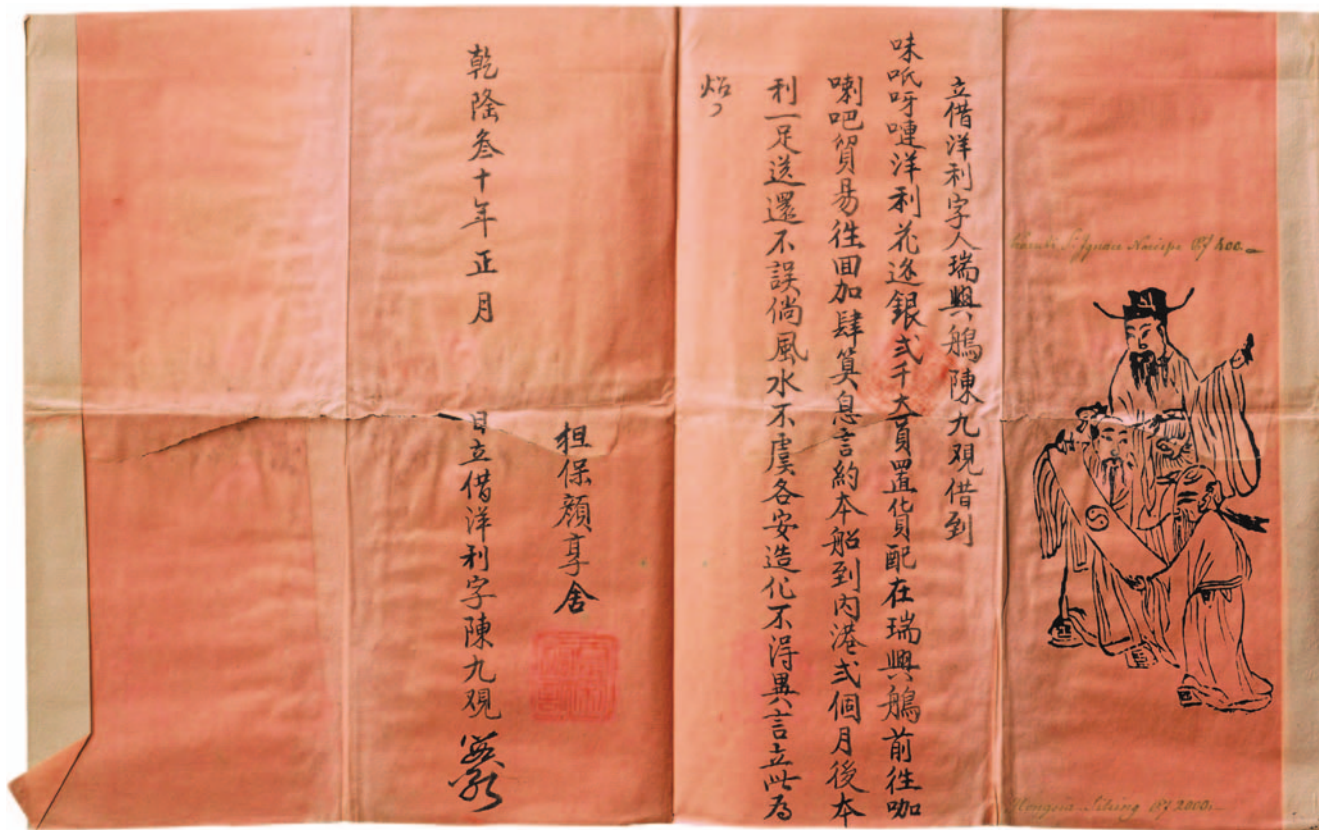 立借洋利字人瑞興鷁陳九观借到
味呧呀嗹洋利花边銀弍千大員置貨配在瑞興鷁前往咖
喇吧貿易徃回加肆算息言約本船到內港弍個月後本
利一足送還不誤倘風水不虞各安造化不得異言立此为
炤
担保顏享舍
乾隆叁十年正月 日立借洋利字陳九观